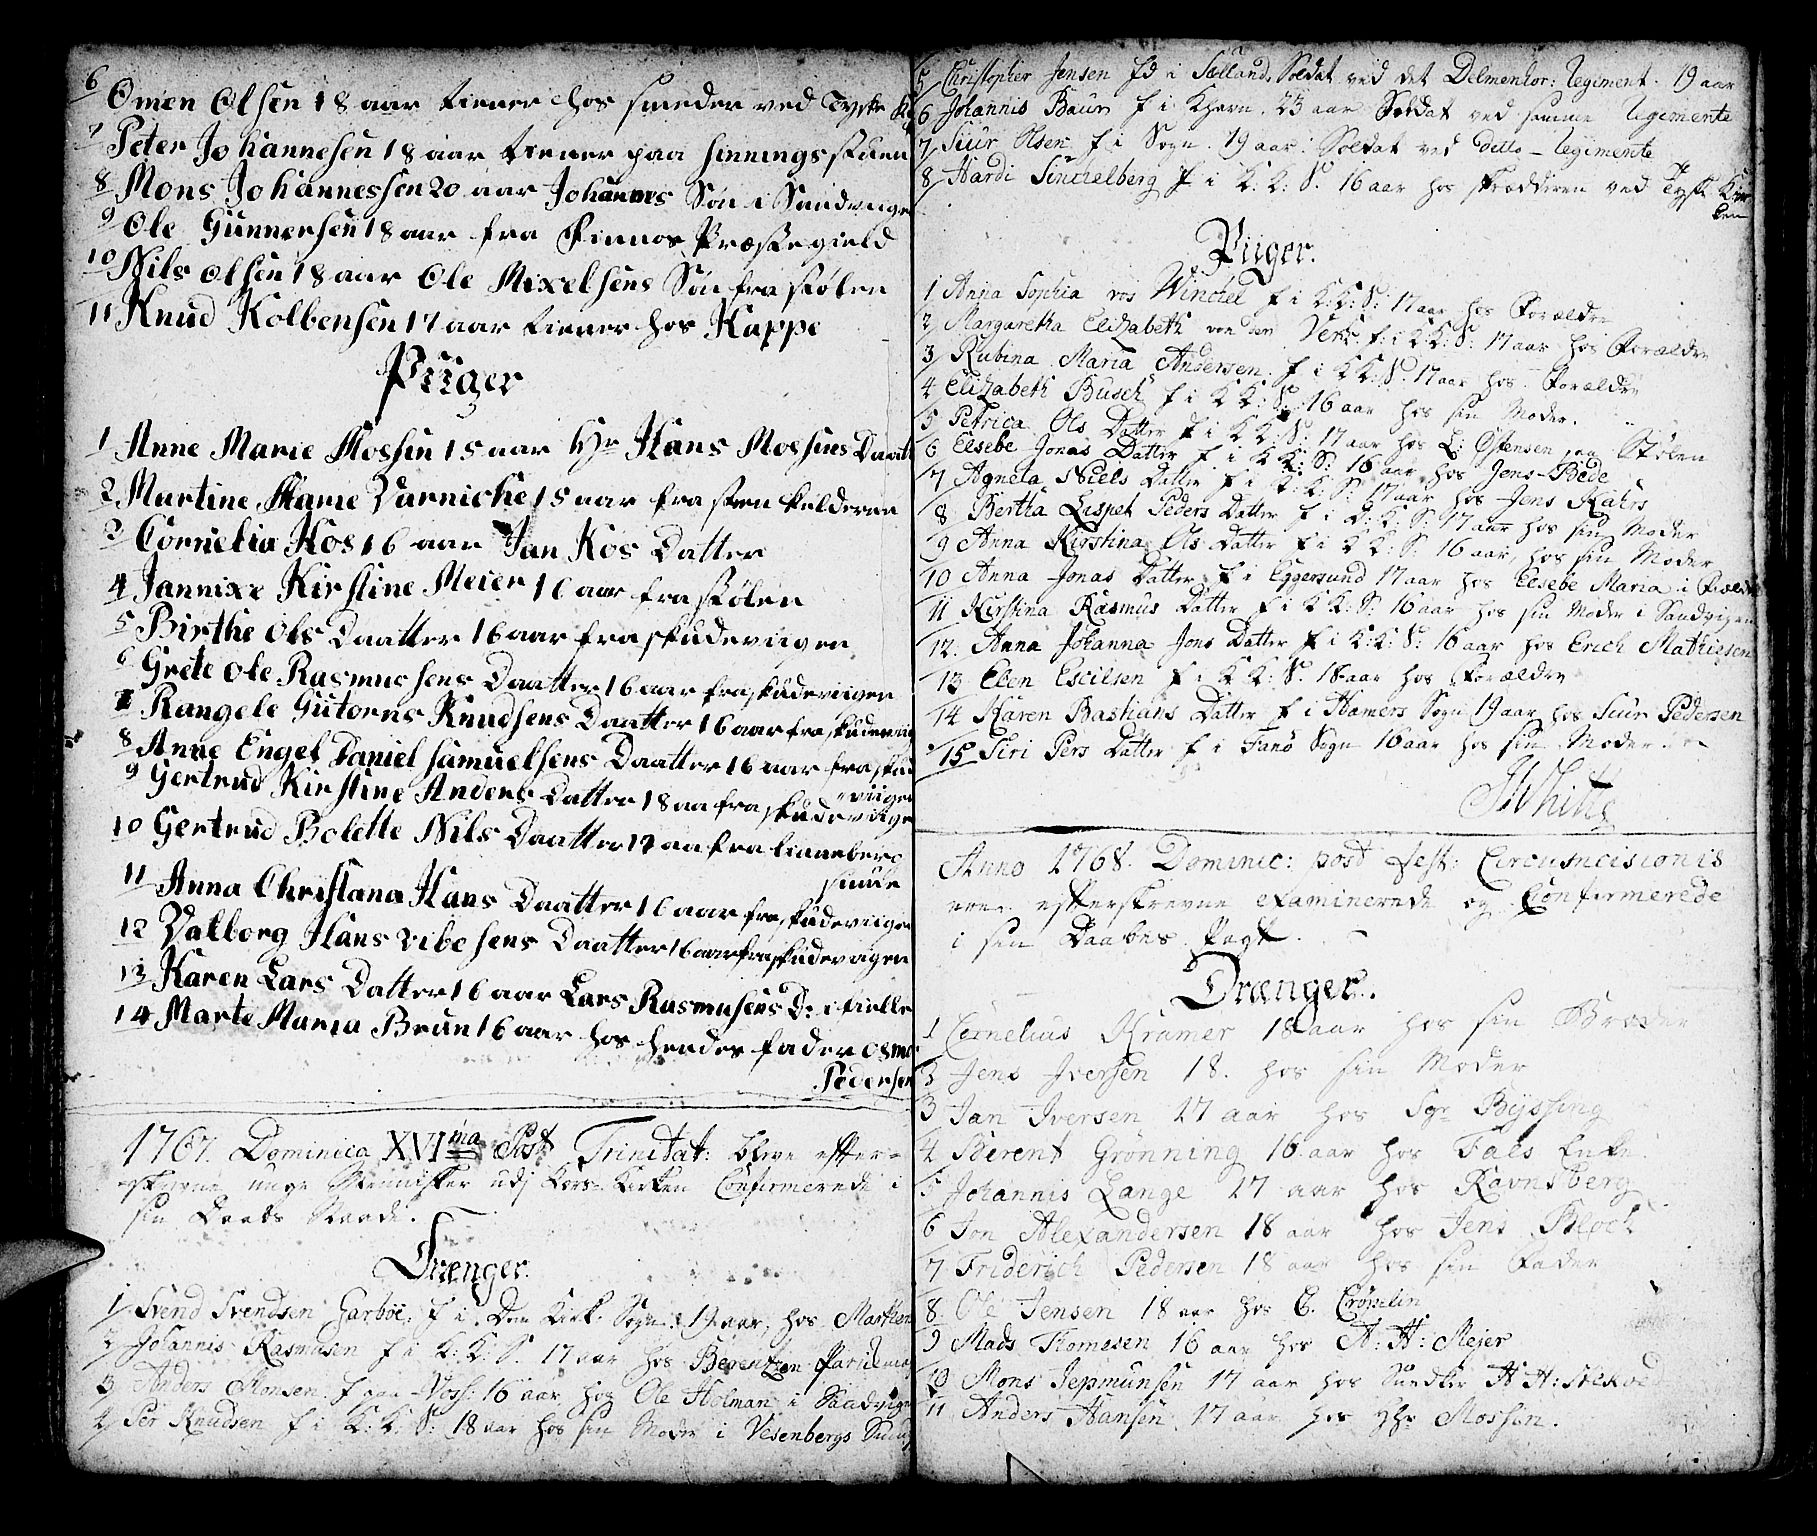 6 Omen Olsen 18 aar tiener hos smeder ved Tyske
7 Peter Johannesen 18 aar tiener paa sinnings stuen
8 Mons Johannessen 20 aar Johannes Søn i Sandvigen
9 Ole Gunnersen 18 aar fra Finnos Præstegield
10 Nils Olsen 18 aar Ole Mixelsens Søn fra stølen
11 Knud Kolbensen 17 aar tiener hos Kappe
Piiger
1 Anne Marie Mossin 15 aar Hr Hans Mossins Daatt
2 Martine Marie Varniche 15 aar fra steen kelderne
3 Cornelia Kos 16 aar Jan Kos Datter
4 Jannixe Kirstine Meier 16 aar fra stølen
5 Birthe Ols Daatter 16 aar fra skudeviigen
6 Grete Ole Rasmussens Daatter 16 aar fra skudeviigen
7 Rangele Gutorns Knudsens Daatter 16 aar fra skudeviig
8 Anne Engel Daniel Samuelsens Daatter 16 aar fra skud
viigen
9 Gertrud Kirstine Anders Datter 18 aa fra skudeviige
10 Gertrud Bolette Nils Daatter 17 aa fra finneberg
smule
11 Anna Christana Hans Daatter 16 aar fra skudeviigen
12 Valborg Hans vibesens Daatter 16 aar fra skudeviigen
13 Karen Lars Datter 16 aar Lars Rasmusens D: i fielle
14 Marte Maria Brun 16 aar hos hendes fader Osmo
Pedersen
1767. Dominica XVI ma Post Trinitat: bleve effter-
skrevne unge Mennisker udj Kors-Kirken Confirmerede i
sin Daabs Naade.
Drænger.
1 Svend Svendsen Garboe, f i Dom Kirk. Sogn. 19 aar, hos Marthen
2 Johannis Rasmusen f i K: K: S. 17 aar hos Berentzen
3 Anders Monsen f paa Voss: 16 aar hos Ole Holman i Sandvige
4 Per Knudsen f i K: K: S: 18 aar hos sin Moder i Vesenbergs Smug
5 Christopher Jensen Fd i Sælland, Soldat ved det Delmenhor: Regiment. 19 aar
6 Johannis Baur f i Khavn. 23 aar Soldat ved samme Regimente
7 Siur Olsen f i Sogn. 19 aar. Soldat ved Ditto - Regimente
8 Hardi Sinchelberg f i K: K: S. 16 aar hos skrædderen ved Tysk Kir
ken
Piiger.
1 Anna Sophia vos Winchel f i K: K: S: 17 aar hos Forældre
2 Margaretha Elizabeth von der Verk f: i K: K: S: 17 aar hos Forældre
3 Rubina Maria Andersen. f i K K: S: 17 aar hos Forældre
4 Elizabeth Busch f i K K: S: 16 aar hos sin Moder.
5 Petrica Ols Datter f i K K: S: 17 aar hos L: Østensen paa Stølen
6 Elsebe Jonas Datter f i K K: S: 16 aar hos Jens Bøde
7 Agneta Niels Datter f i K: K: S: 17 aar hos Jens Kahrs
8 Bertha Lispet Peders Datter f i K: K: S: 17 aar hos sin Moder
9 Anna Kirstina Ols Datter f i K K: S: 16 aar, hos sin Moder
10 Anna Jonas Datter f i Eggersund 17 aar hos Elsebe Maria i
11 Kirstina Rasmus Datter f i K K: S: 16 aar hos sin Moder i Sandvigen
12. Anna Johanna Jons Datter f i K: K: S: 16 aar hos Erich Mathiesen
13 Elen Escilsen f i K K: S. 18 aar hos Forældre
14 Karen Bastians Datter f i Hamers Sogn 19 aar hos Siur Pedersen
15 Siri Pers Datter f i Fanø Sogn 16 aar hos sin Moder.
Anno 1768. Dominic: post fest: Circumcisionis
ere efterskrevne examinerede og Confirmerede
i sin Daabes Pagt.
Drænger.
1 Cornelius Kramer 18 aar hos sin Broder
2 Jens Iversen 18. hos sin Moder
3 Jan Iversen 17 aar hos Sgr Byssing
4 Berent Grønning 16 aar hos Fals Enke.
5 Johannis Lange 17 aar hos Ravnsberg
6 Jon Alexandersen 18 aar hos Jens Bloch
7 Friderich Pedersen 18 aar hos sin Fader
8. Ole Jensen 18 aar hos C. Crömlin
9 Mads Thomesen 16 aar hos A: H: Mejer
10 Mons Jepmunsen 17 aar hos
11 Anders Hansen 17 aar hos Hr Mossin.